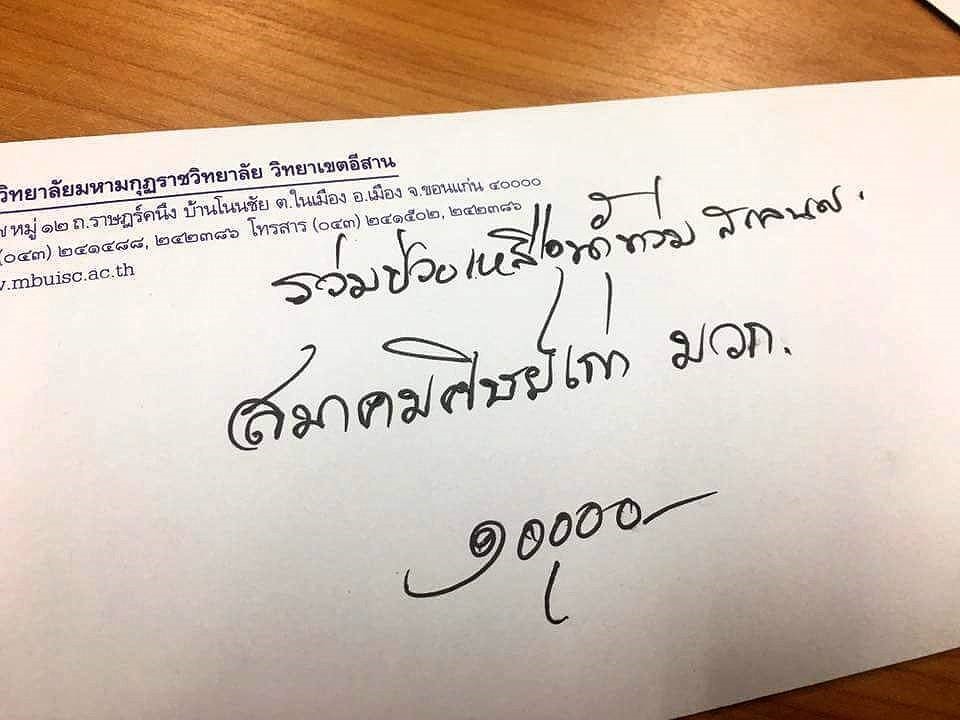 วิทยาลัยมหามกุฏราชวิทยาลัย วิทยาเขตอีสาน
๗ หมู่ ๑๒ ถ.ราษฎร์คนึง บ้านโนนชัย ต.ในเมือง อ.เมือง จ.ขอนแก่น ๔๐๐๐๐
(๐๔๓) ๒๔๑๔๘๘, ๒๔๒๓๘๖ โทรสาร (๐๔๓) ๒๔๑๕๐๒, ๒๔๒๓๘๖
w.mbuisc.ac.th
ร่วมช่วยเหลือน้ำท่วม สกลนคร
สมาคมศิษย์เก่า มวก.
๑๐,๐๐๐-